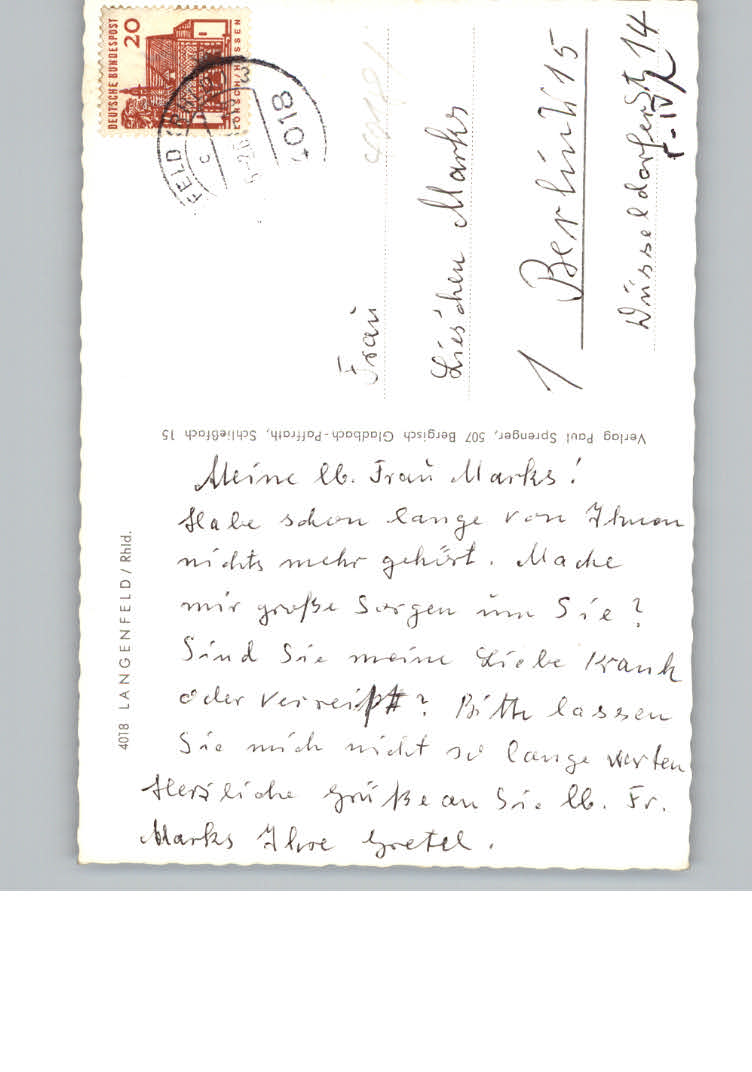 Meine lb. Frau Marks!
Habe schon lange von Ihnen
nichts mehr gehört. Mache
mir große Sorgen um Sie?
Sind Sie meine Liebe Krank
oder verreißt? Bitte lassen
Sie mich nicht so lange warten
Herzliche Grüße an Sie lb. Fr.
Marks Ihre Gretel.
4018 LANGENFELD / Rhld.
Verlag Paul Sprenger, 507 Bergisch Gladbach-Paffrath, Schließfach 15
Frau
Lieschen Marks
1 Berlin 15
Düsseldorferstr 14
DEUTSCHE BUNDESPOST
20
LORSCH/HESSEN
4018